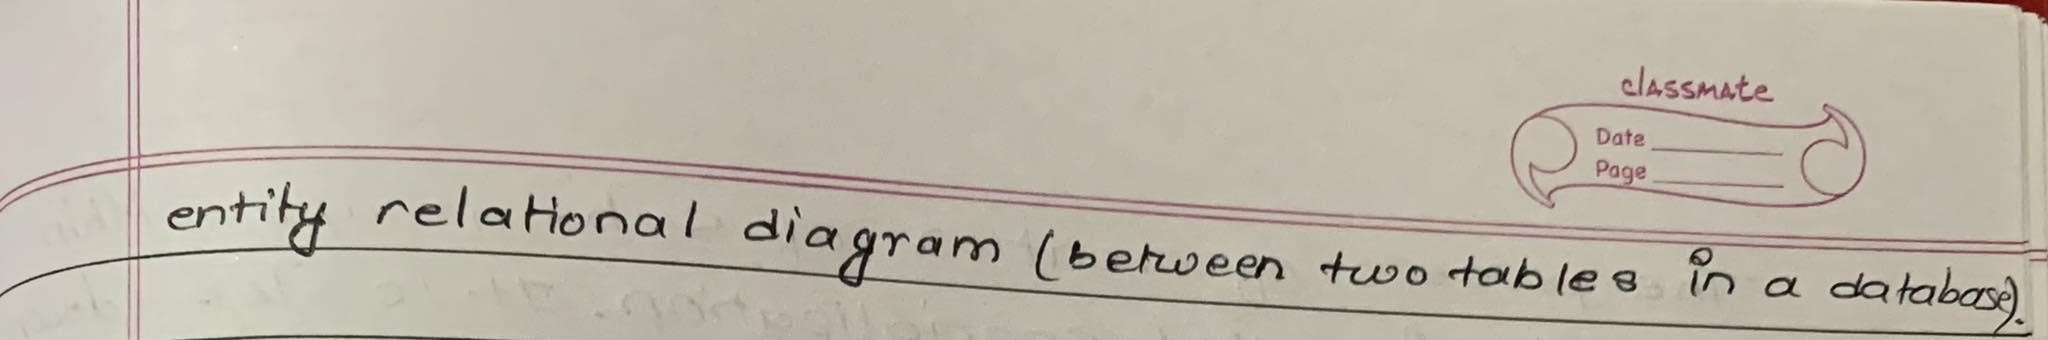 classmate
Date
Page
entity relational diagram (between two tables in a database).